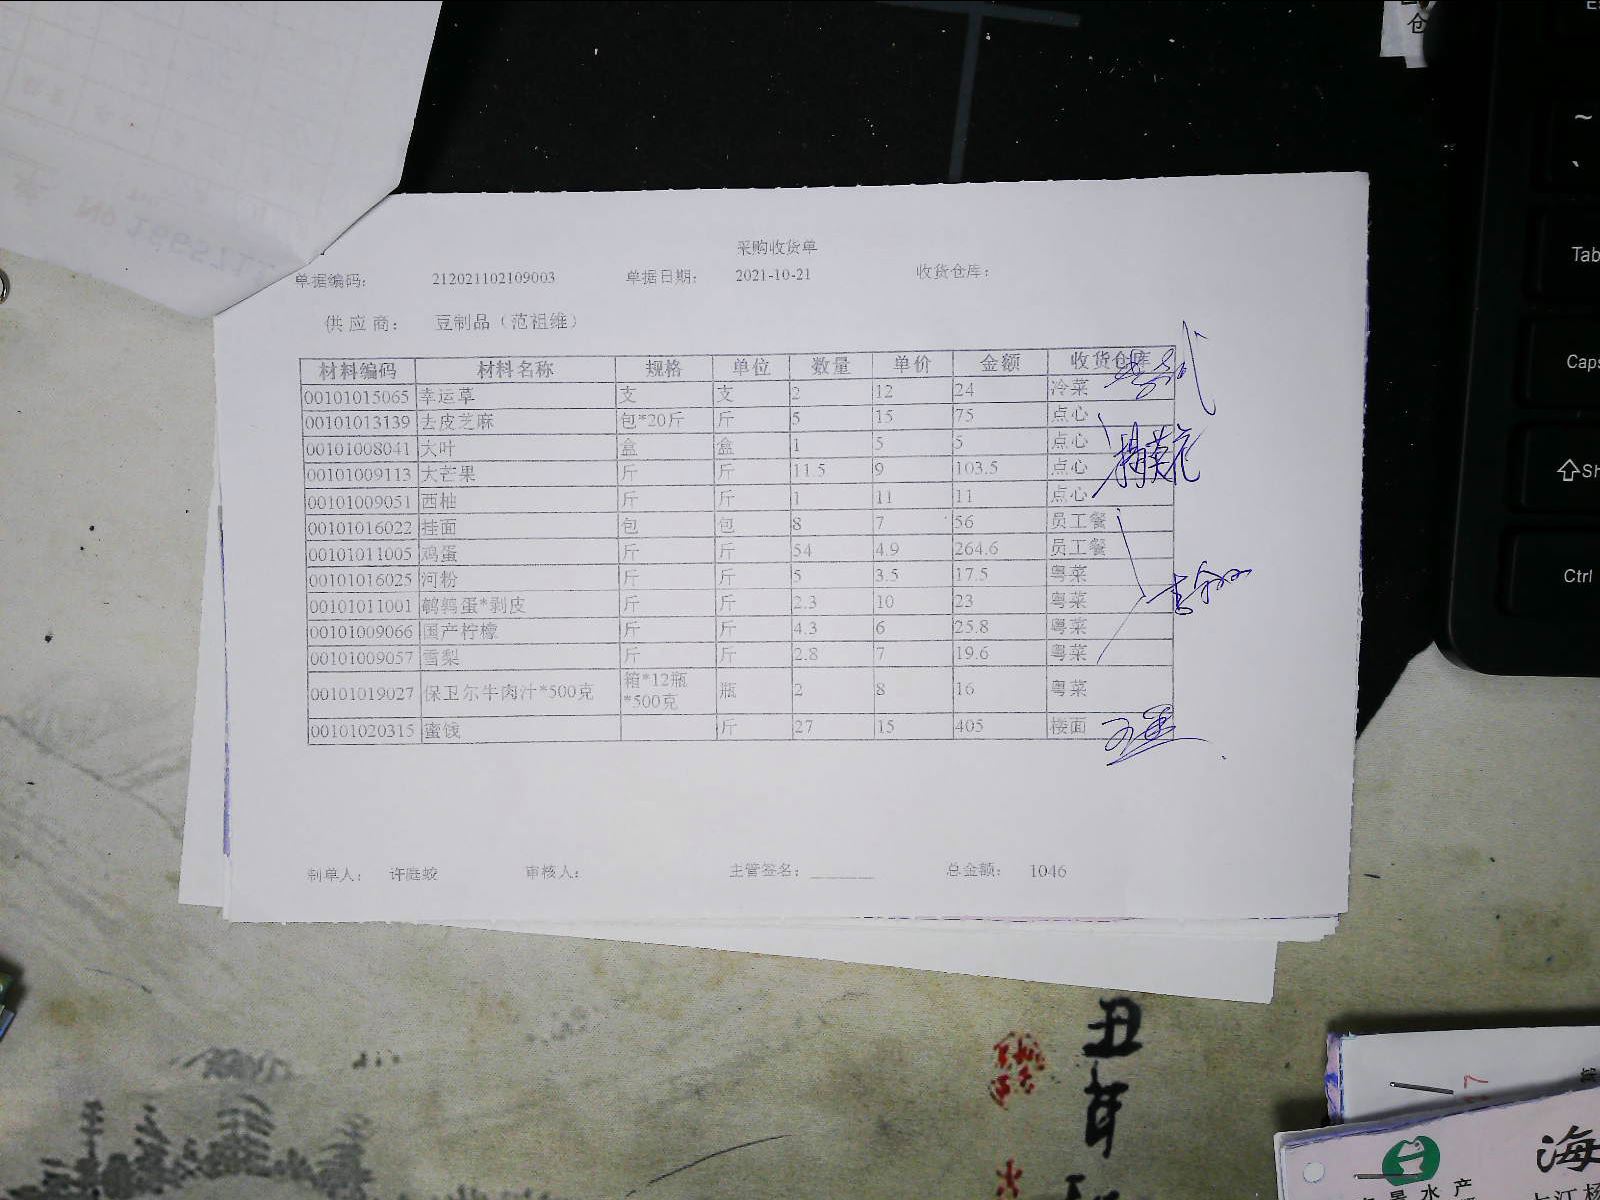 采购收货单
单据编码: 212021102109003 单据日期: 2021-10-21 收货仓库:
供应商: 豆制品（范祖维）
材料编码 材料名称 规格 单位 数量 单价 金额 收货仓库
00101015065 幸运草 支 支 2 12 24 冷菜
00101013139 去皮芝麻 包*20斤 斤 5 15 75 点心
00101008041 大叶 盒 盒 1 5 5 点心
00101009113 大芒果 斤 斤 11.5 9 103.5 点心
00101009051 西柚 斤 斤 1 11 11 点心
00101016022 挂面 包 包 8 7 56 员工餐
00101011005 鸡蛋 斤 斤 54 4.9 264.6 员工餐
00101016025 河粉 斤 斤 5 3.5 17.5 粤菜
00101011001 鹌鹑蛋*剥皮 斤 斤 2.3 10 23 粤菜
00101009066 国产柠檬 斤 斤 4.3 6 25.8 粤菜
00101009057 雪梨 斤 斤 2.8 7 19.6 粤菜
00101019027 保卫尔牛肉汁*500克 箱*12瓶*500克 瓶 2 8 16 粤菜
00101020315 蜜饯 斤 27 15 405 楼面
制单人: 许庭蛟 审核人: 主管签名: 总金额: 1046
Tab
Caps
Sh
Ctrl
仓
丑
海
水产